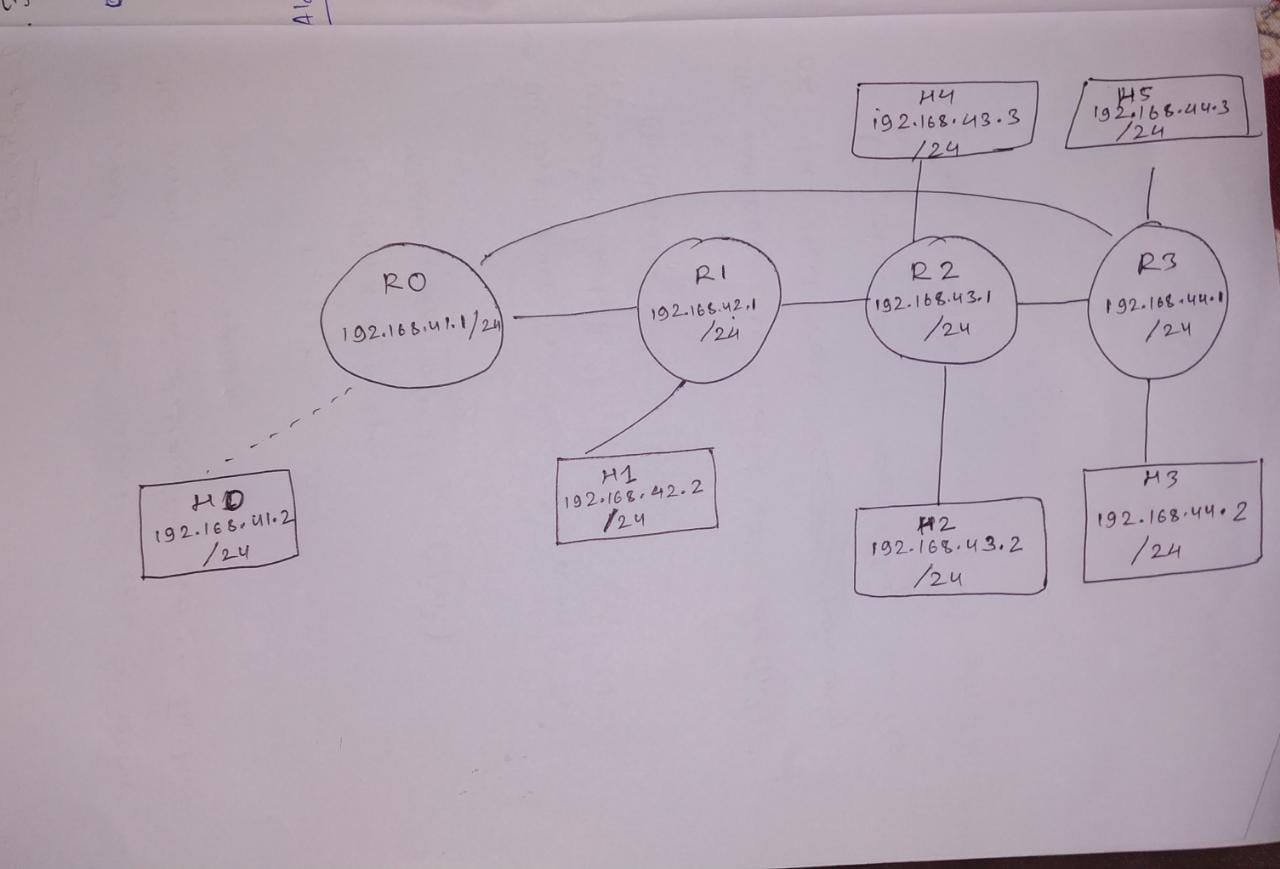 H4
192.168.43.3
/24
H5
192.168.44.3
/24
R0
192.168.41.1/24
R1
192.168.42.1
/24
R2
192.168.43.1
/24
R3
192.168.44.1
/24
H0
192.168.41.2
/24
H1
192.168.42.2
/24
H2
192.168.43.2
/24
H3
192.168.44.2
/24